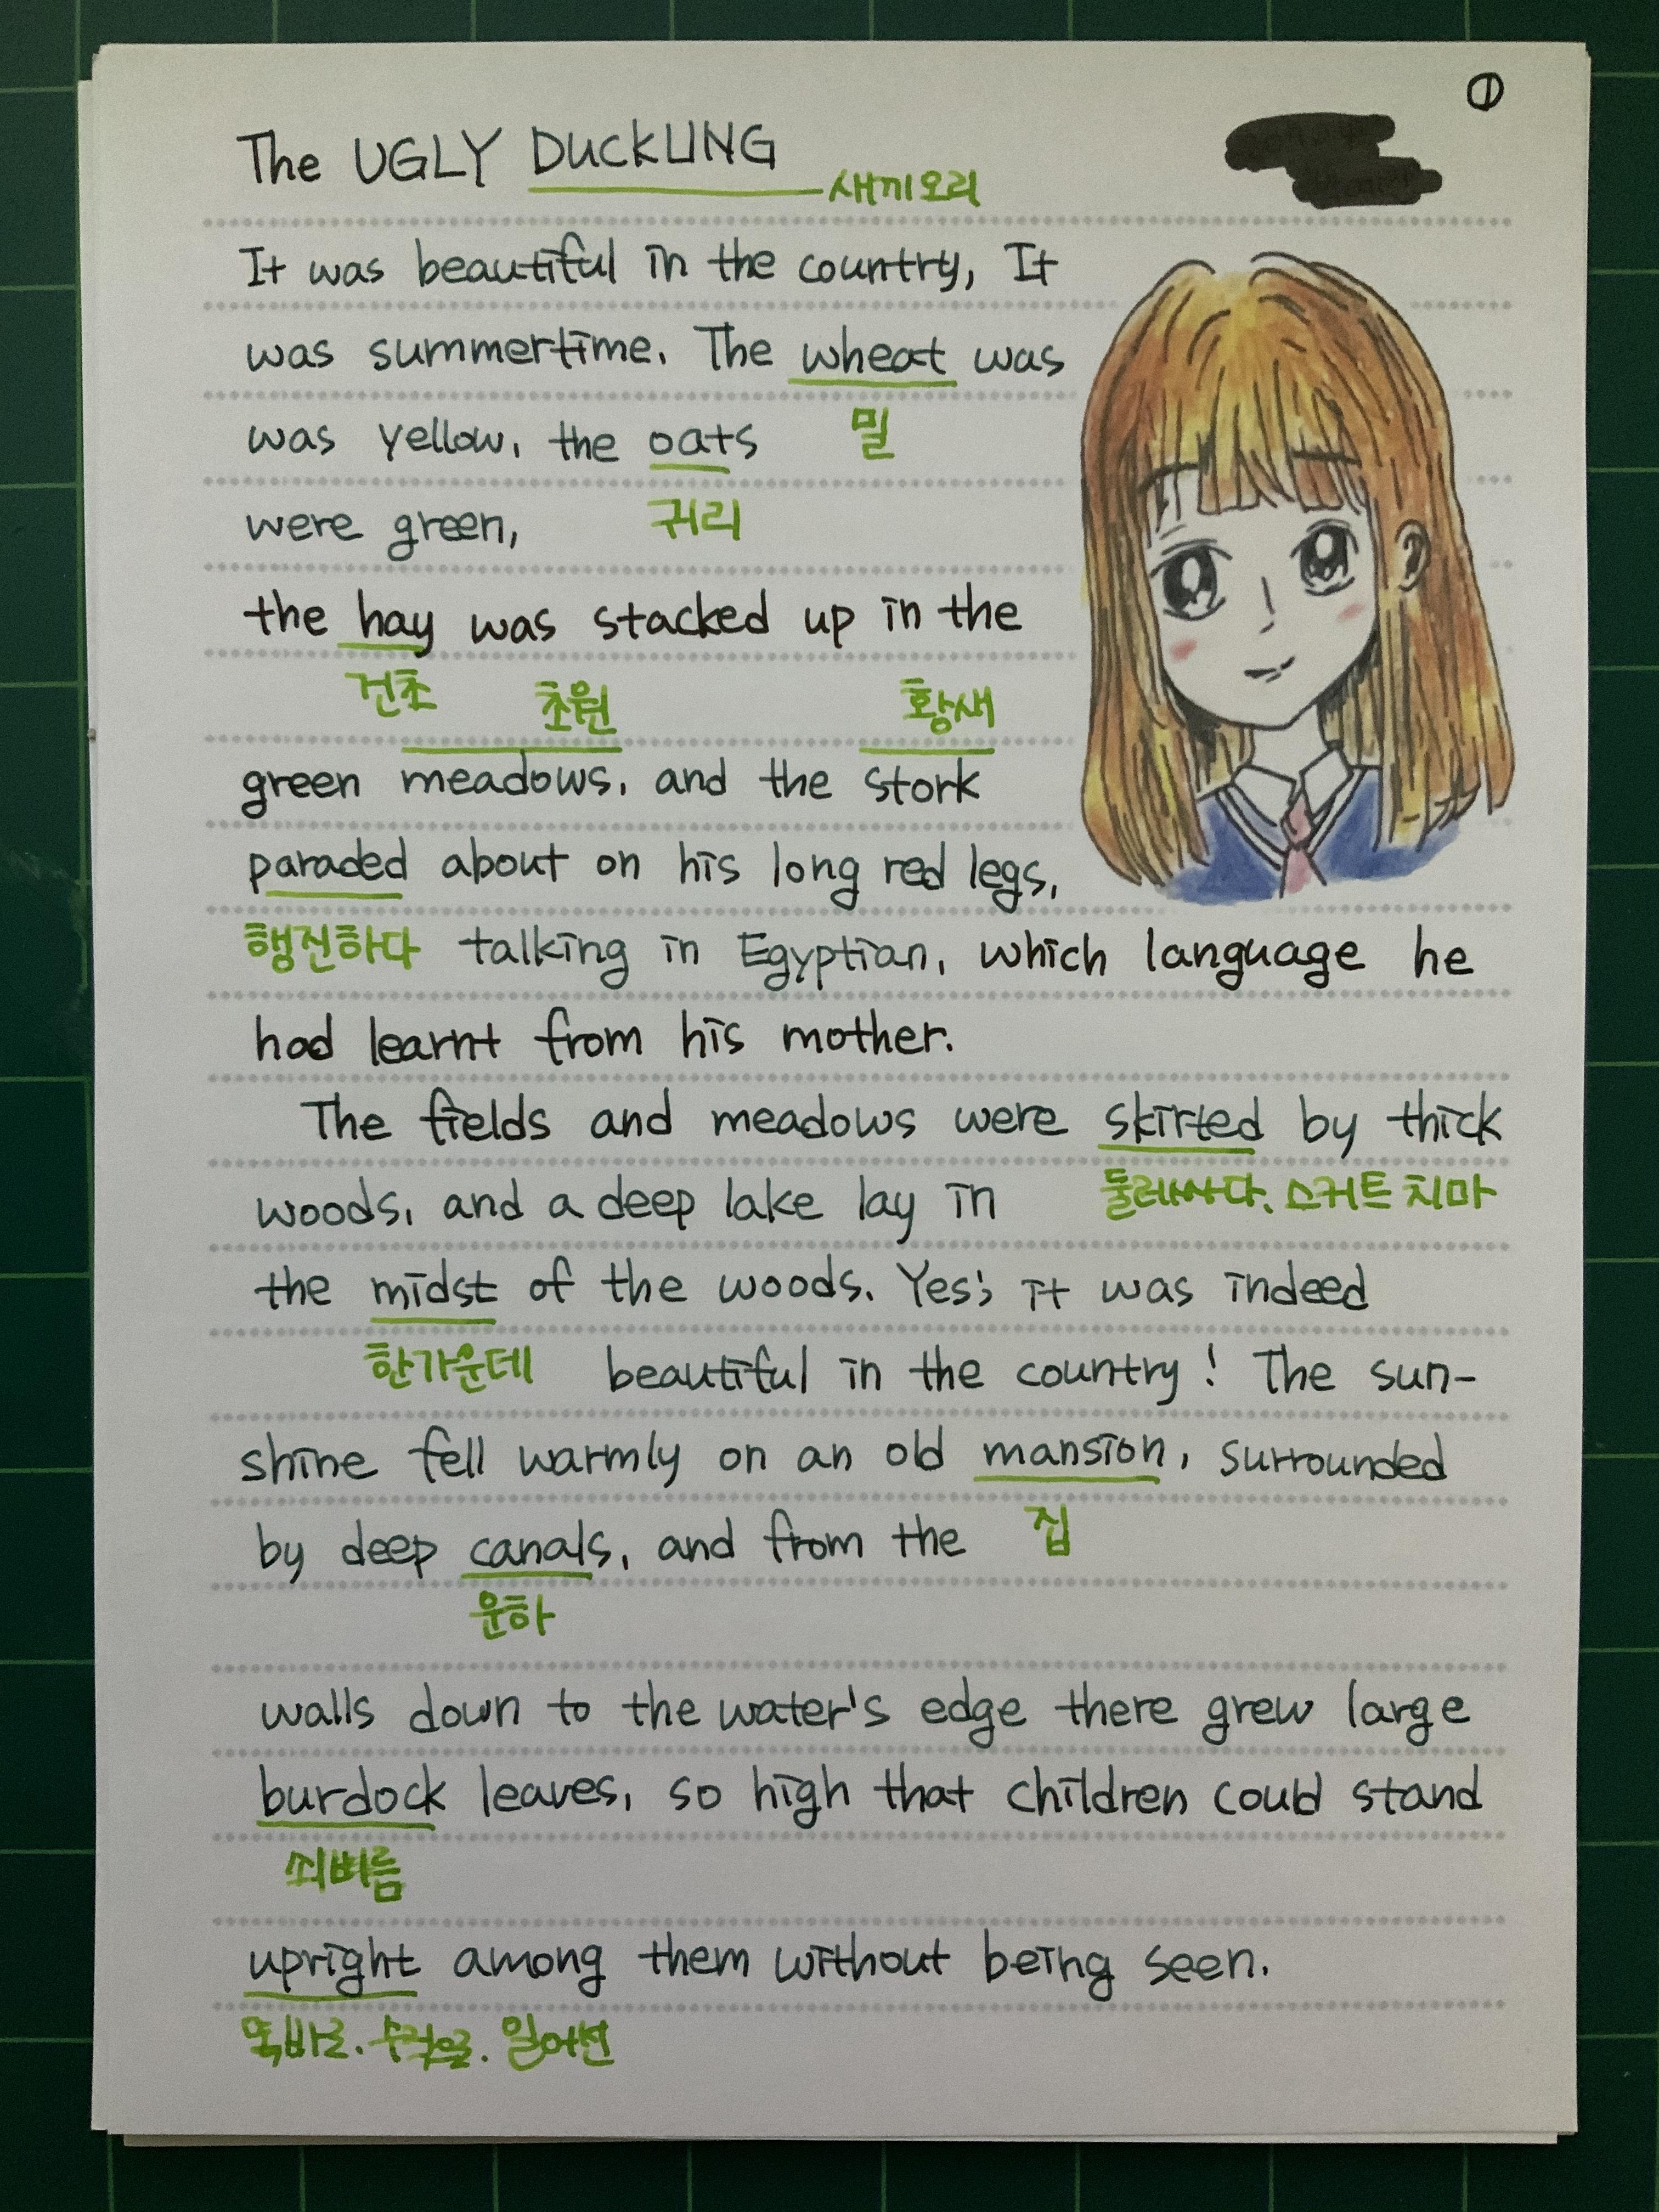 ①
The UGLY DUCKLING
새끼오리
It was beautiful in the country, It
was summertime. The wheat was
was yellow, the oats 밀
were green, 귀리
the hay was stacked up in the
건초 초원 황새
green meadows, and the stork
paraded about on his long red legs,
행진하다 talking in Egyptian, which language he
had learnt from his mother.
The fields and meadows were skirted by thick
woods, and a deep lake lay in 둘러싸다. 스커트 치마
the midst of the woods. Yes; it was indeed
한가운데 beautiful in the country! The sun-
shine fell warmly on an old mansion, surrounded
by deep canals, and from the 집
운하
walls down to the water's edge there grew large
burdock leaves, so high that children could stand
쇠뼈름
upright among them without being seen.
똑바로. 수직으로. 일어선